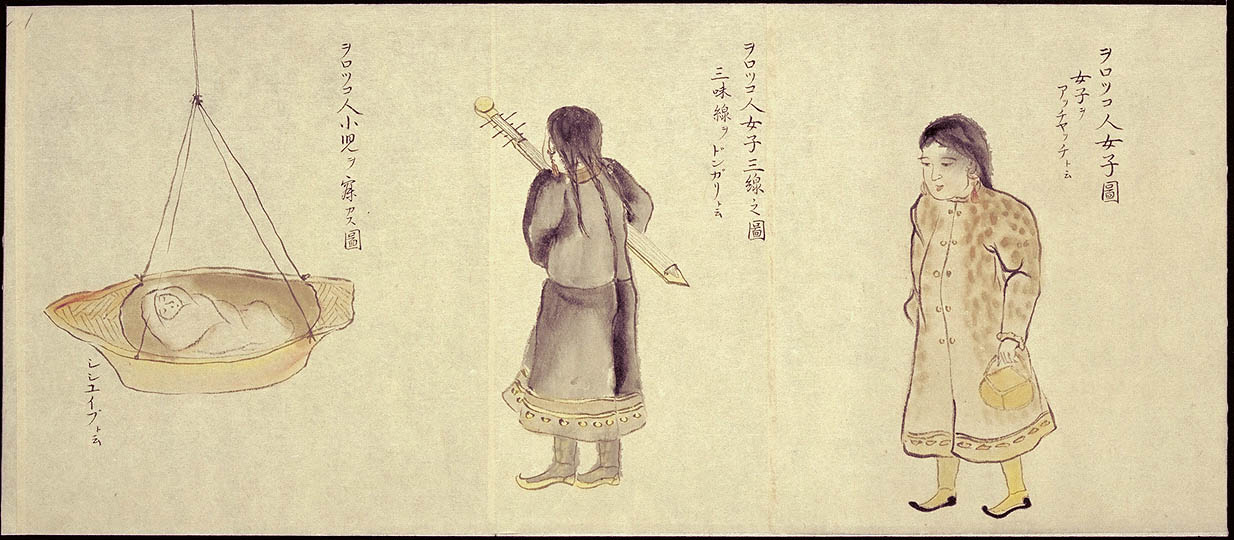 ヲロツコ人女子圖
女子ヲ
アツチヤツチト云
ヲロツコ人女子三線之圖
三味線ヲドンガリト云
ヲロツコ人小児ヲ寐カス圖
シシユイプト云